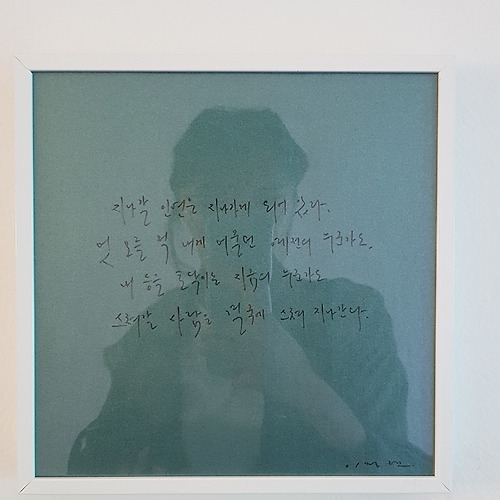 지나갈 인연은 지나가게 되어 있다.
멋 모를 적 내게 머물던 예전의 누군가도,
내 등을 토닥이는 지금의 누군가도
스쳐갈 사람은 결국에 스쳐 지나간다.